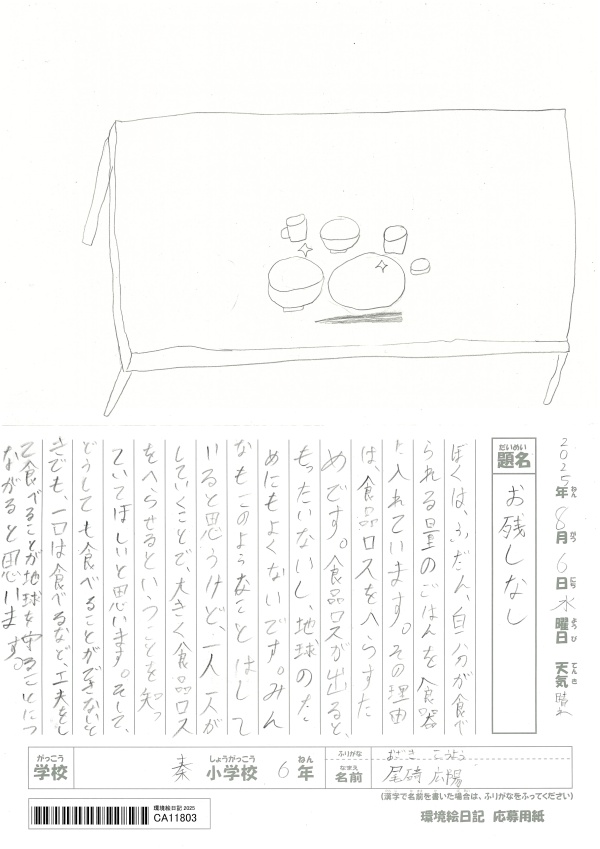 2025年ねん 8月がつ 6日にち 水曜日ようび 天気てんき 晴れ
だいめい
題名
お残しなし
ぼくは、ふだん、自分が食べ
られる量のごはんを食器
に入れています。その理由
は、食品ロスをへらすた
めです。食品ロスが出ると、
もったいないし、地球のた
めにもよくないです。みん
なもこのようなことはして
いると思うけど、一人一人が
していくことで、大きく食品ロス
をへらせるということを知っ
ていてほしいと思います。そして、
どうしても食べることができないと
きでも、一口は食べるなど、工夫をし
て食べることが地球を守ることにつ
ながると思います。
がっこう
学校
秦
しょうがっこう
小学校
6
ねん
年
ふりがな
おざき こうよう
なまえ
名前
尾﨑 広陽
(漢字で名前を書いた場合は、ふりがなをふってください)
環境絵日記 2025
CA11803
環境絵日記 応募用紙